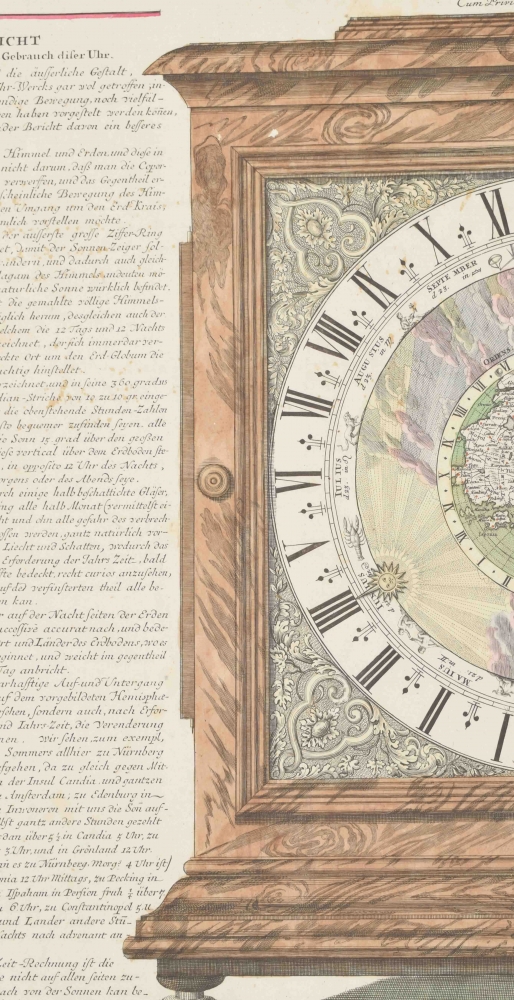 Cum Privi
ICHT
Gebrauch diser Uhr.
die äusserliche Gestalt,
Uhr-Wercks gar wol getroffen, in-
ndige Bewegung, noch vielfäl-
en haben vorgestelt werden können,
der Bericht davon ein besseres
Himmel und Erden, und diese in
nicht darum, daß man die Coper-
verwerffen, und das Gegentheil er-
scheinliche Bewegung des Him-
en Umgang um den Erd-Krais,
mlich vorstellen möchte.
der äusserste große Ziffer-Ring
et, damit der Sonnen-Zeiger sol-
ändern, und dadurch auch gleich-
des Himmels, andeuten mö-
natürliche Sonne würklich befindet.
die gemahlte völlige Himmels-
glich herum, desgleichen auch der
welchem die 12 Tags und 12 Nachts
zeichnet, der sich immerdar ver-
ckte Ort um den Erd-Globum die
achtig hinstellet.
rzeichnet, und in seine 360 gradus
dian-Striche von 10 zu 10 gr. einge-
die obenstehende Stunden-Zahlen
sto bequemer zufinden seyen. alle
ie Sonn 15 grad über den großen
vertical über dem Erdboden ste-
in opposito 12 Uhr des Nachts,
orgens oder des Abends seye.
rch einige halb beschattichte Gläser,
ng alle halb Monat (vermittelst ei-
ht und ohn alle gefahr des verbrech-
ossen werden, gantz natürlich vor-
Liecht und Schatten, wodurch das
Erforderung der Jahrs Zeit, bald
fte bedeckt, recht curiös anzusehen,
auf des verfinsterten theil alle be-
n kan.
r auf der Nacht seiten der Erden
uccessive accurat nach, und bede-
rt und Länder des Erdbodens, wo es
ginnet, und weicht im gegentheil
Tag anbricht.
arhafftige Auf- und Untergang
auf dem vorgebildeten Hemisphæ-
rsehen, sondern auch, nach Erfor-
und Jahr-Zeit, die Veränderung
nen. Wir sehen zum exempl,
Sommers allhier zu Nürnberg
fgehen, da zu gleich gegen Mit-
n der Insul Candia, und gantzen
Amsterdam, zu Edenburg in
Inwohnern mit uns die Son auf-
lbst gantz andere Stunden gezehlt
dan über 5½ in Candia 5 Uhr, zu
3 Uhr, und in Grönland 12 Uhr.
nn es zu Nürnberg Morgs 4 Uhr ist)
onia 12 Uhr Mittags, zu Pecking in
Ispaham in Persien früh
6 Uhr, zu Constantinopel 5 U
und Länder andere Stü-
Nachts nach advenant an
Zeit-Rechnung ist die
e nicht auf allen seiten zu-
ach von der Sonnen kan be-
XII
XI
X
IX
VIII
VII
VI
V
IIII
III
II
I
SEPTEMBER
d 23. in
AUGUSTUS
d 23. in
JULIUS
MAIUS
ORIENS
Iaponia